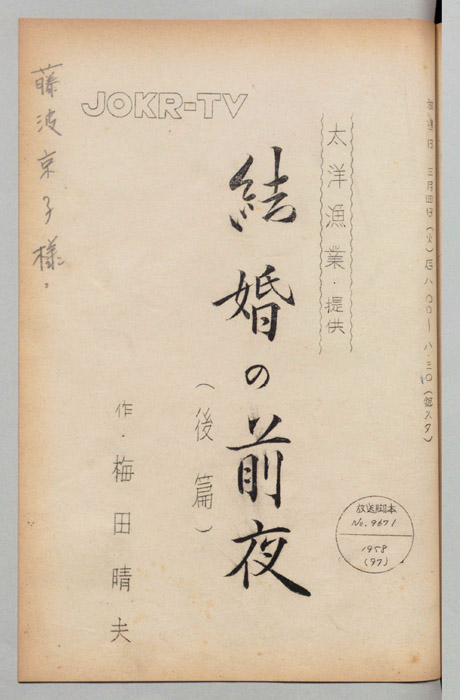 放送日 三月四日(火)后八・〇〇―八・三〇
太洋漁業・提供
結婚の前夜
(後篇)
作・梅田晴夫
JOKR-TV
藤波京子様。
放送脚本
No. 9671
1958
(97)